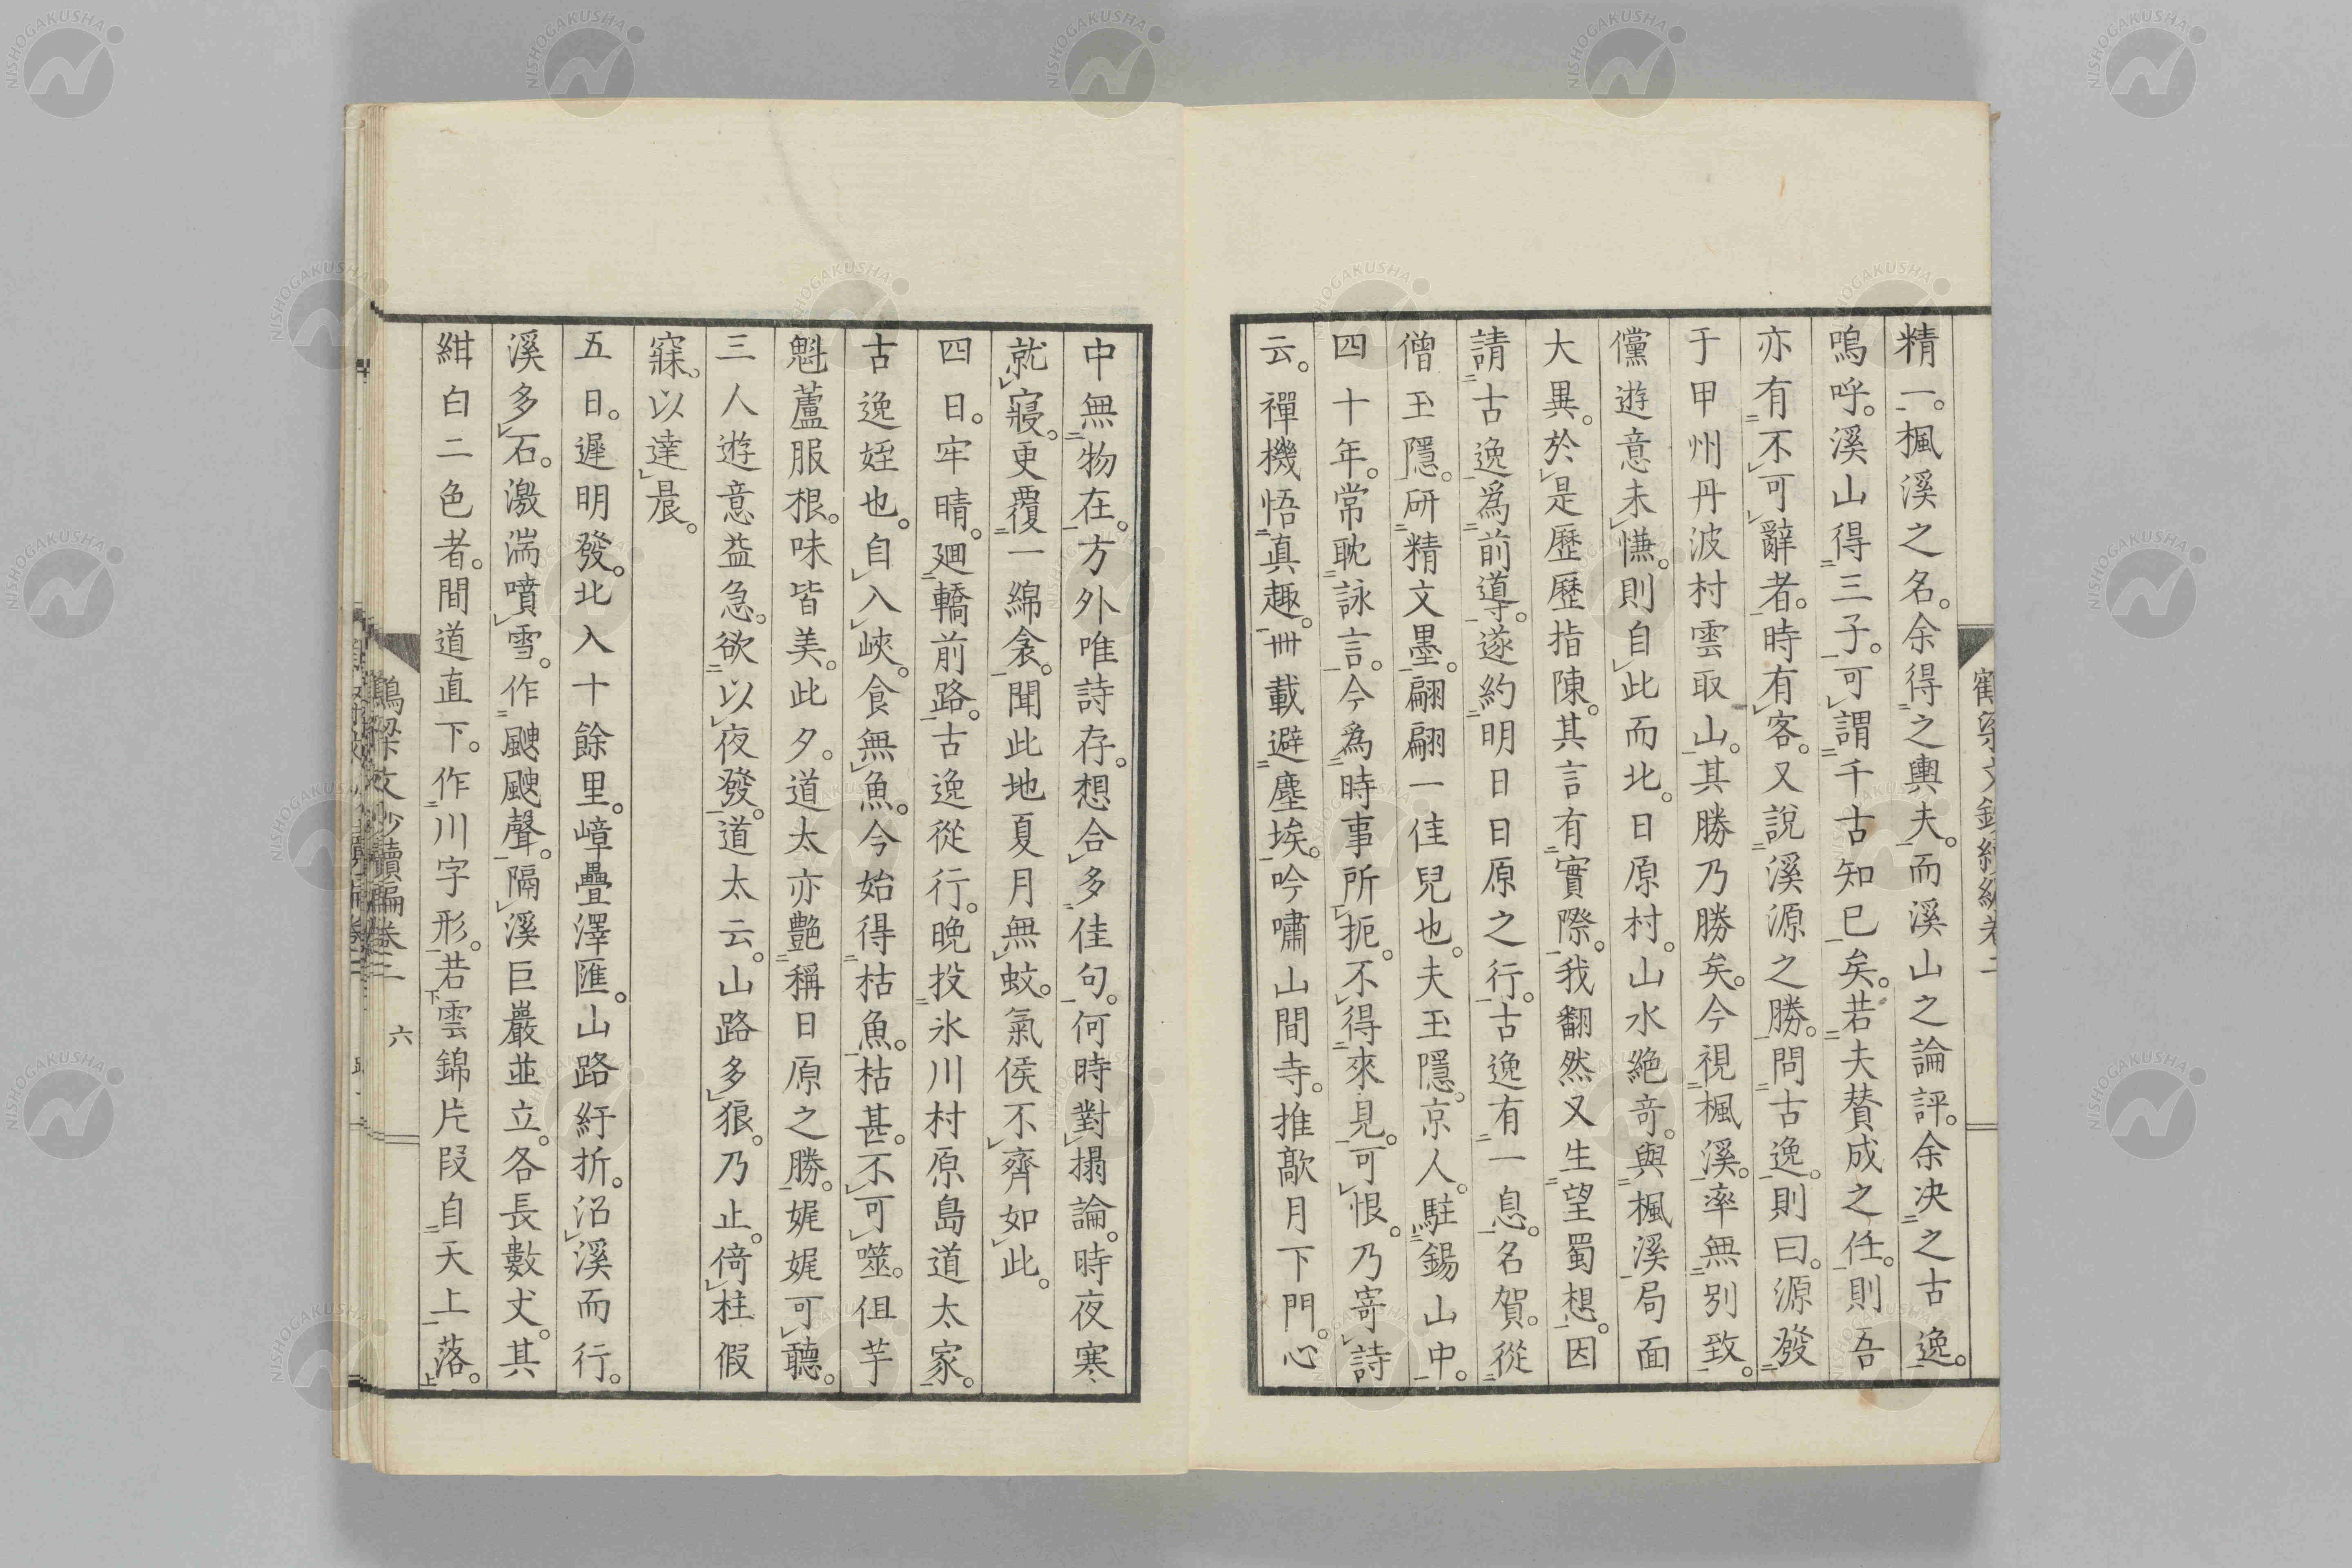 精一。楓溪之名。余得之輿夫。而溪山之論評。余決之古逸。
嗚呼。溪山得三子。可謂千古知已矣。若夫賛成之任。則吾
亦有不可辭者。時有客。又説溪源之勝。問古逸。則曰。源發
于甲州丹波村雲取山。其勝乃勝矣。今視楓溪。率無別致。
儻遊意未慊。則自此而北。日原村。山水絶奇。與楓溪局面
大異。於是歷歷指陳。其言有實際。我翻然又生望蜀想。因
請古逸爲前導。遂約明日日原之行。古逸有一息。名賀。從
僧玉隱。研精文墨。翩翩一佳兒也。夫玉隱。京人。駐錫山中。
四十年。常耽詠言。今爲時事所扼。不得來見。可恨。乃寄詩
云。禪機悟真趣。卌載避塵埃。吟嘯山間寺。推敲月下門。心
中無物在。方外唯詩存。想合多佳句。何時對搨論。時夜寒
就寢。更覆一綿衾。聞此地夏月無蚊。氣侯不齊如此。
四日。牢晴。廽轎前路。古逸從行。晩投氷川村原島道太家。
古逸姪也。自入峽。食無魚。今始得枯魚。枯甚。不可噬。但芋
魁蘆服根。味皆美。此夕。道太亦艷稱日原之勝。娓娓可聽。
三人遊意益急。欲以夜發。道太云。山路多狼。乃止。倚柱假
寐。以達晨。
五日。遲明發。北入十餘里。嶂疊澤匯。山路紆折。沿溪而行。
溪多石。激湍噴雪。作颼颼聲。隔溪巨巖並立。各長數丈。其
紺白二色者。間道直下。作川字形。若雲錦片段自天上落。
六